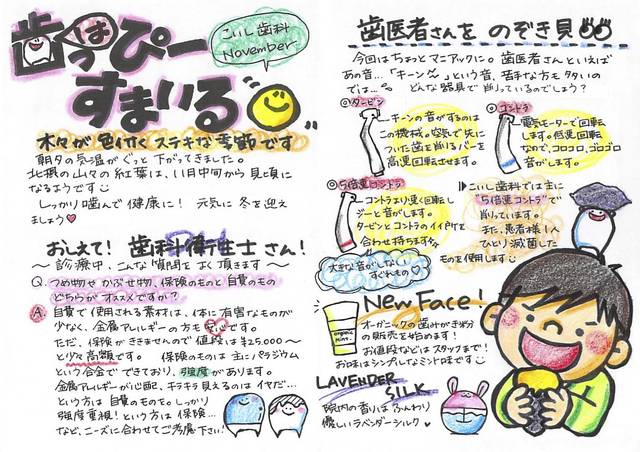 歯っぴー
は
すまいる
こいし歯科
November
木々が色付くステキな季節です
朝夕の気温がぐっと下がってきました。
北摂の山々の紅葉は、11月中旬から見頃に
なるようです
しっかり噛んで健康に！ 元気に冬を迎え
ましょう♡
おしえて！歯科衛生士さん！
DH
～診療中、こんな質問をよく頂きます～
Q. つめ物や かぶせ物、保険のものと自費のもの
どちらがオススメですか？
A. 自費で使用される素材は、体に有害なものが
少なく、金属アレルギーの方も安心です。
ただ、保険がききませんので値段は¥25,000～
と少々高額です。 保険のものは主にパラジウム
という合金でできており、強度があります。
金属アレルギーが心配、キラキラ見えるのはイヤだ…
という方は 自費のものを。しっかり
強度重視！という方は保険…
など、ニーズに合わせてご考慮下さい！
歯医者さんを のぞき見
今回はちょっとマニアックに。歯医者さんといえば
あの音…「キーン〜」という音、苦手な方も多いの
では… どんな器具で削っているのでしょう？
◎タービン
キーンの音がするのは
この機械。空気で先に
ついた歯を削るバーを
高速回転させます。
◎コントラ
電気モーターで回転
します。低速回転
なので、コロコロ、ゴロゴロ
音がします。
◎5倍速コントラ
コントラより速く回転し
ジーと音がします。
タービンとコントラのイイ所を
合わせ持ちます
大きな音がしない
すぐれもの♡
こいし歯科では主に
"5倍速コントラ"で
削っています。
また、患者様1人
ひとり滅菌した
ものを使用します
New Face!
organic
オーガニックの歯みがき粉
の販売を始めます！
お値段などはスタッフまで！！
お味はシンプルなミント味です
LAVENDER
SILK
院内の香りはふんわり
優しいラベンダーシルク♥